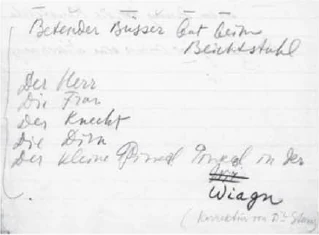 Betender Büsser hat beim
Beichtstuhl
Der Herr
Die Frau
Der Knecht
Die Dirn
Der kleine in der
Wiagn
(Korrektur von